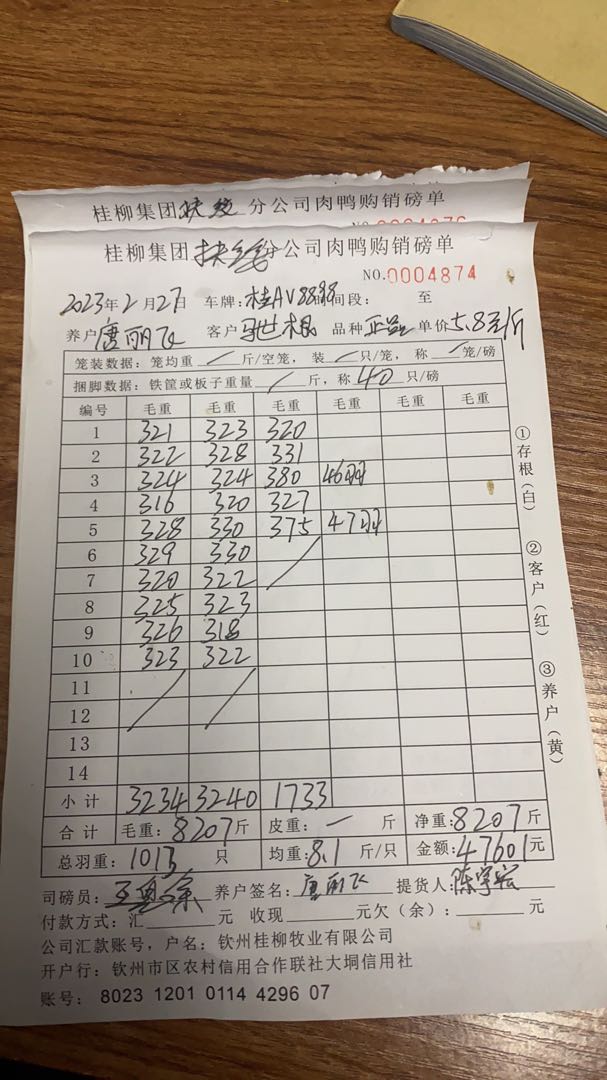 桂柳集团扶绥分公司肉鸭购销磅单
桂柳集团扶绥分公司肉鸭购销磅单
NO.0004874
2023年2月27日 车牌:桂AV8888时间段: 至
养户唐丽飞 客户 品种正品 单价5.8元/斤
笼装数据:笼均重/斤/空笼,装/只/笼,称/笼/磅
捆脚数据:铁筐或板子重量/斤,称40只/磅
编号 毛重 毛重 毛重 毛重 毛重 毛重
1 321 323 320
2 322 328 331
3 324 324 380 46羽
4 316 320 327
5 328 330 375 47羽
6 329 330
7 320 322
8 325 323
9 326 318
10 323 322
11
12
13
14
小计 3234 3240 1733
合计 毛重:8207斤 皮重:一斤 净重:8207斤
总羽重:1013只 均重:8.1斤/只 金额:47601元
司磅员: 养户签名:唐丽飞 提货人:陈宇宏
付款方式:汇 元 收现 元欠(余): 元
公司汇款账号,户名:钦州桂柳牧业有限公司
开户行:钦州市区农村信用合作联社大垌信用社
账号:8023 1201 0114 4296 07
①存根(白)
②客户(红)
③养户(黄)